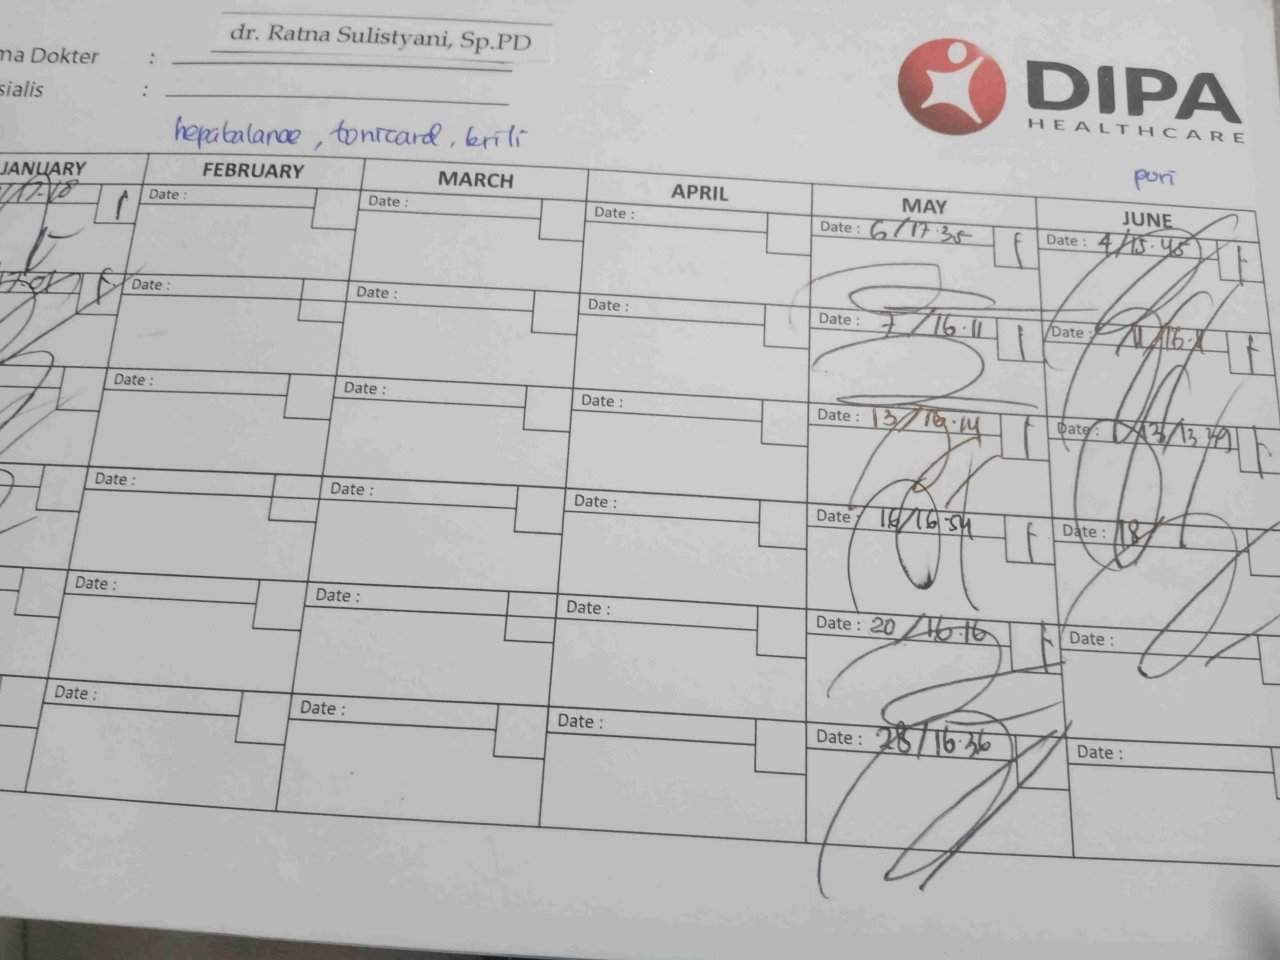 dr. Ratna Sulistyani, Sp.PD
ma Dokter :
sialis :
DIPA
HEALTHCARE
hepabalance, tonicard, brili
puri
JANUARY FEBRUARY MARCH APRIL MAY JUNE
Date : Date : Date : Date : 6/17.35 Date : 4/15.45
Date : Date : Date : Date : 7/16.11 Date : 11/16.11
Date : Date : Date : Date : 13/16.14 Date : 13/13.39
Date : Date : Date : Date : 16/16.54 Date : 18/
Date : Date : Date : Date : 20/16.16 Date :
Date : Date : Date : Date : 28/16.36 Date :